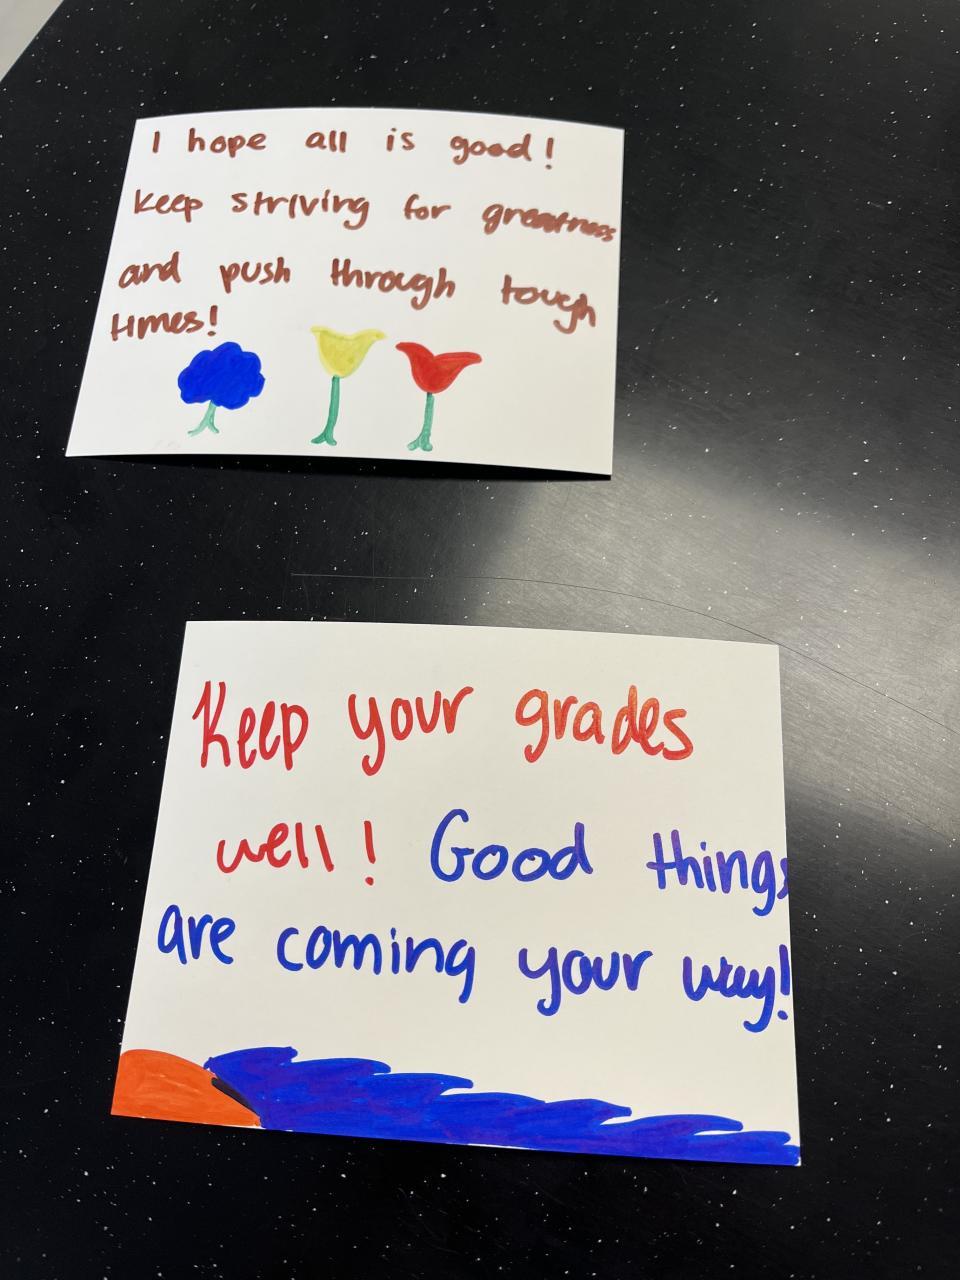 I hope all is good!
keep striving for greatness
and push through tough
times!
Keep your grades
well! Good things
are coming your way!